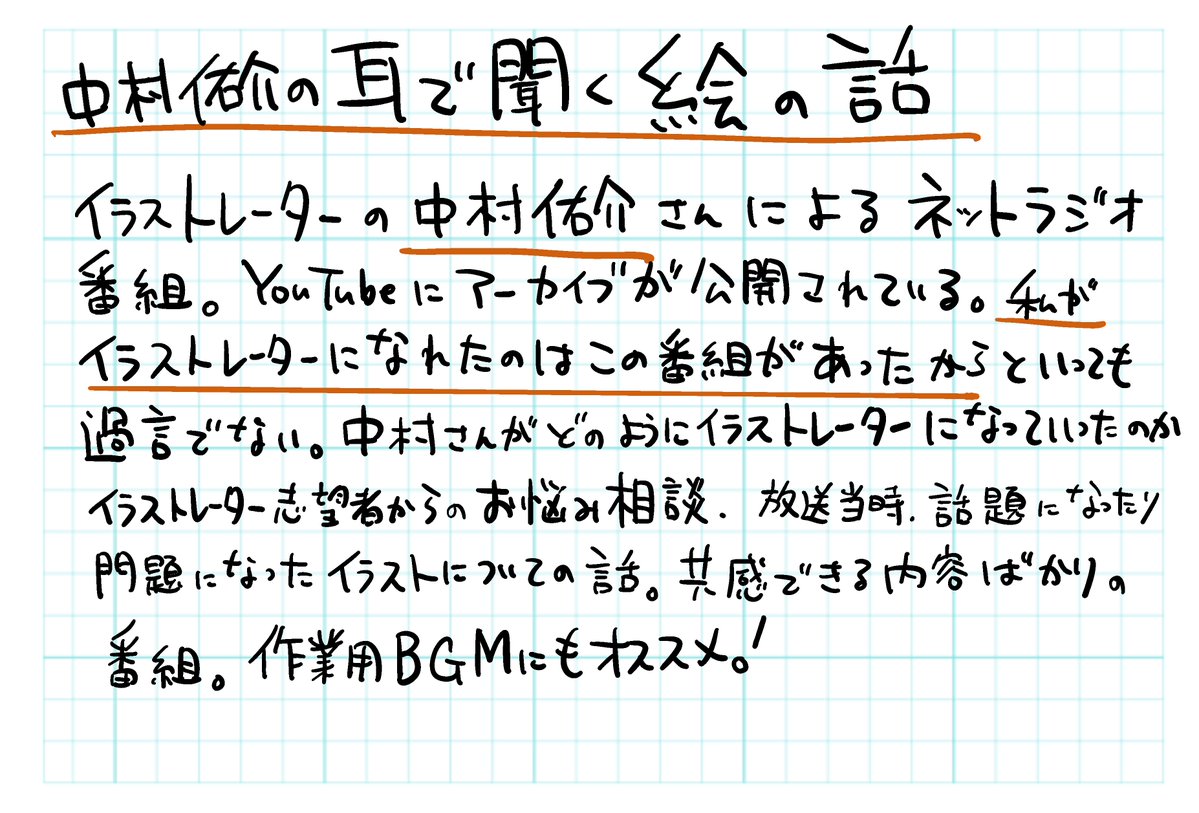 中村佑介の耳で聞く絵の話
イラストレーターの中村佑介さんによるネットラジオ
番組。YouTubeにアーカイブが公開されている。私が
イラストレーターになれたのはこの番組があったからといっても
過言でない。中村さんがどのようにイラストレーターになっていったのか
イラストレーター志望者からのお悩み相談、放送当時、話題になったり
問題になったイラストについての話。共感できる内容ばかりの
番組。作業用BGMにもオススメ。!